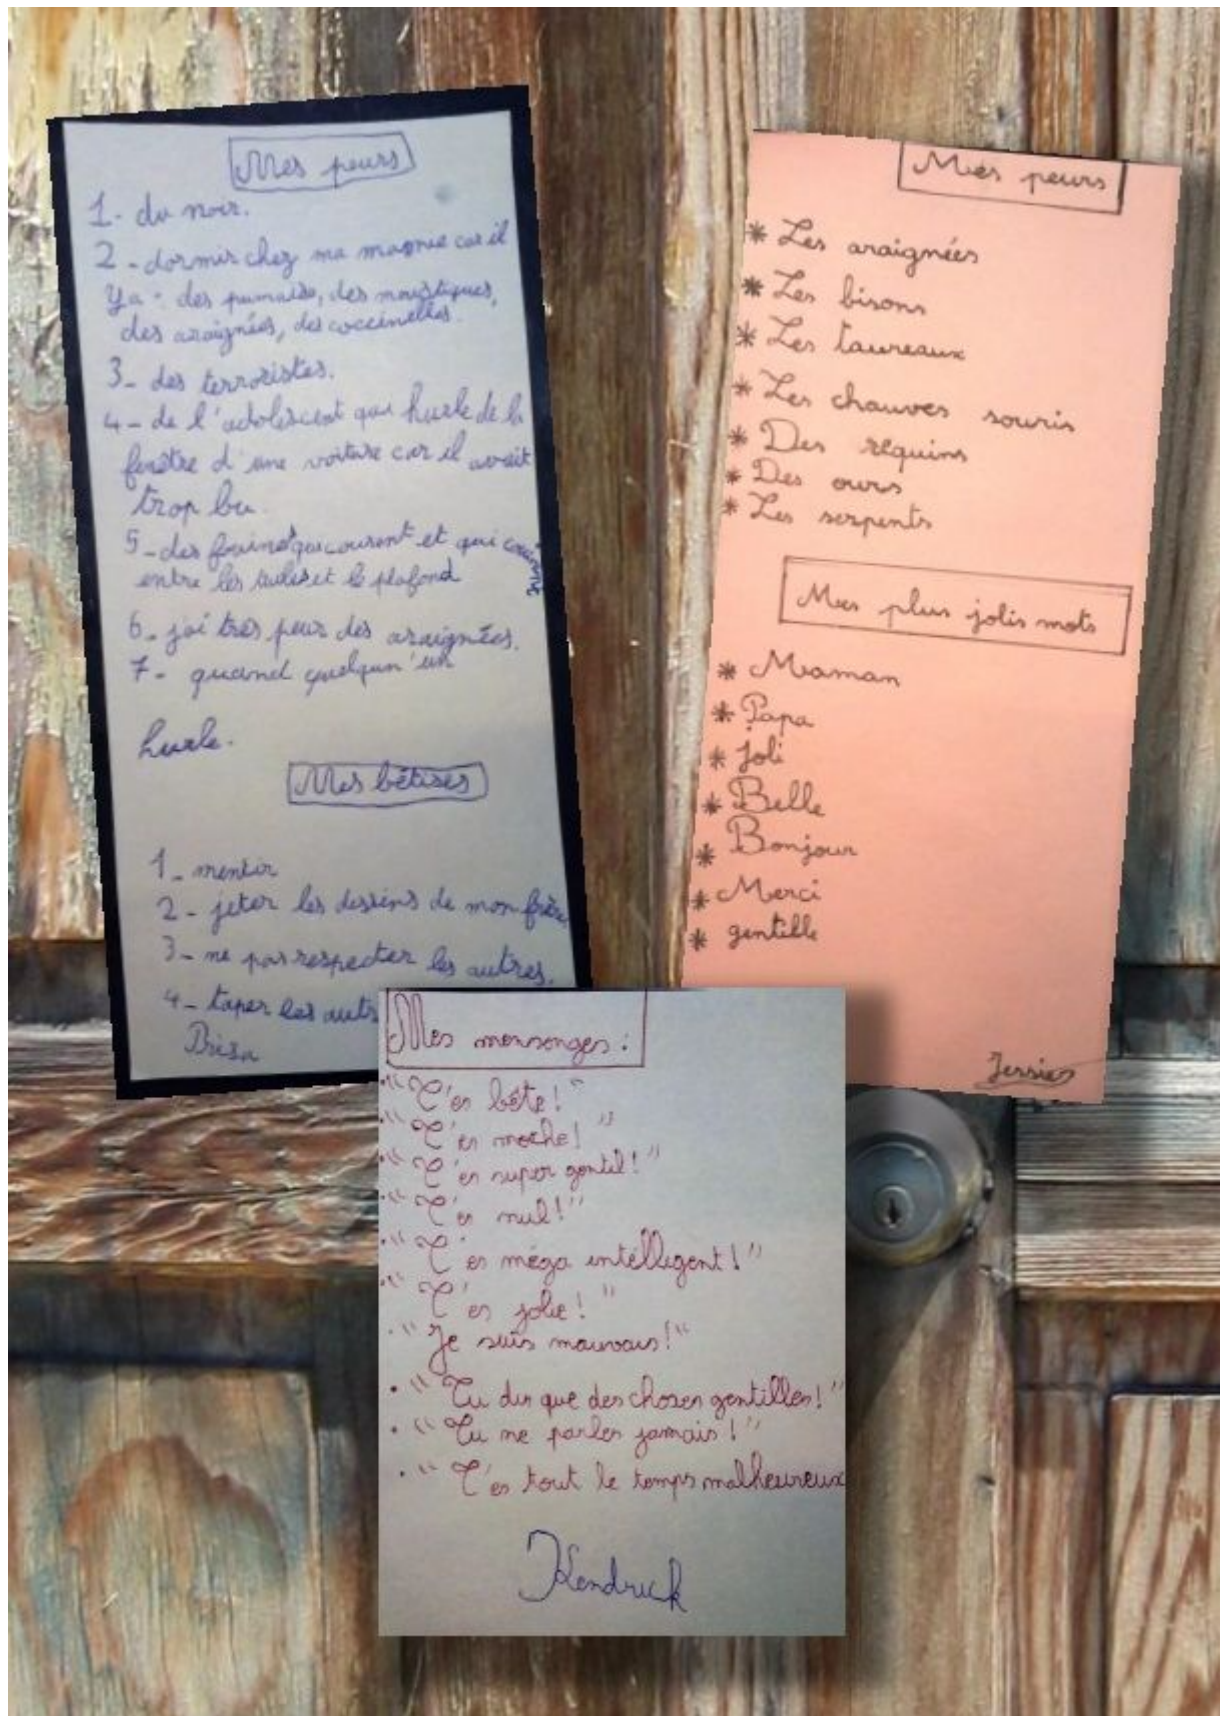 Mes peurs
1- du noir.
2- dormir chez ma mamie car il
Ya : des punaises, des moustiques,
des araignées, des coccinelles.
3- des terroristes.
4- de l'adolescent qui hurle de la
fenêtre d'une voiture car il avait
trop bu.
5- des fouines qui courent et qui
entre les tuiles et le plafond
6- j'ai très peur des araignées.
7- quand quelqu'un
hurle.
Mes bêtises
1- mentir
2- jeter les dessins de mon frère
3- ne pas respecter les autres.
4- taper les autr
Mes peurs
* Les araignées
* Les bisons
* Les taureaux
* Les chauves souris
* Des requins
* Des ours
* Les serpents
Mes plus jolis mots
* Maman
* Papa
* joli
* Belle
* Bonjour
* Merci
* gentille
Jessie
Mes mensonges :
· "T'es bête!"
· "T'es moche!"
· "T'es super gentil!"
· "T'es nul!"
· "T'es méga intélligent!"
· "T'es jolie!"
· "Je suis mauvais!"
· "Tu dis que des choses gentilles!"
· "Tu ne parles jamais!"
· "T'es tout le temps malheureux
Kendrick